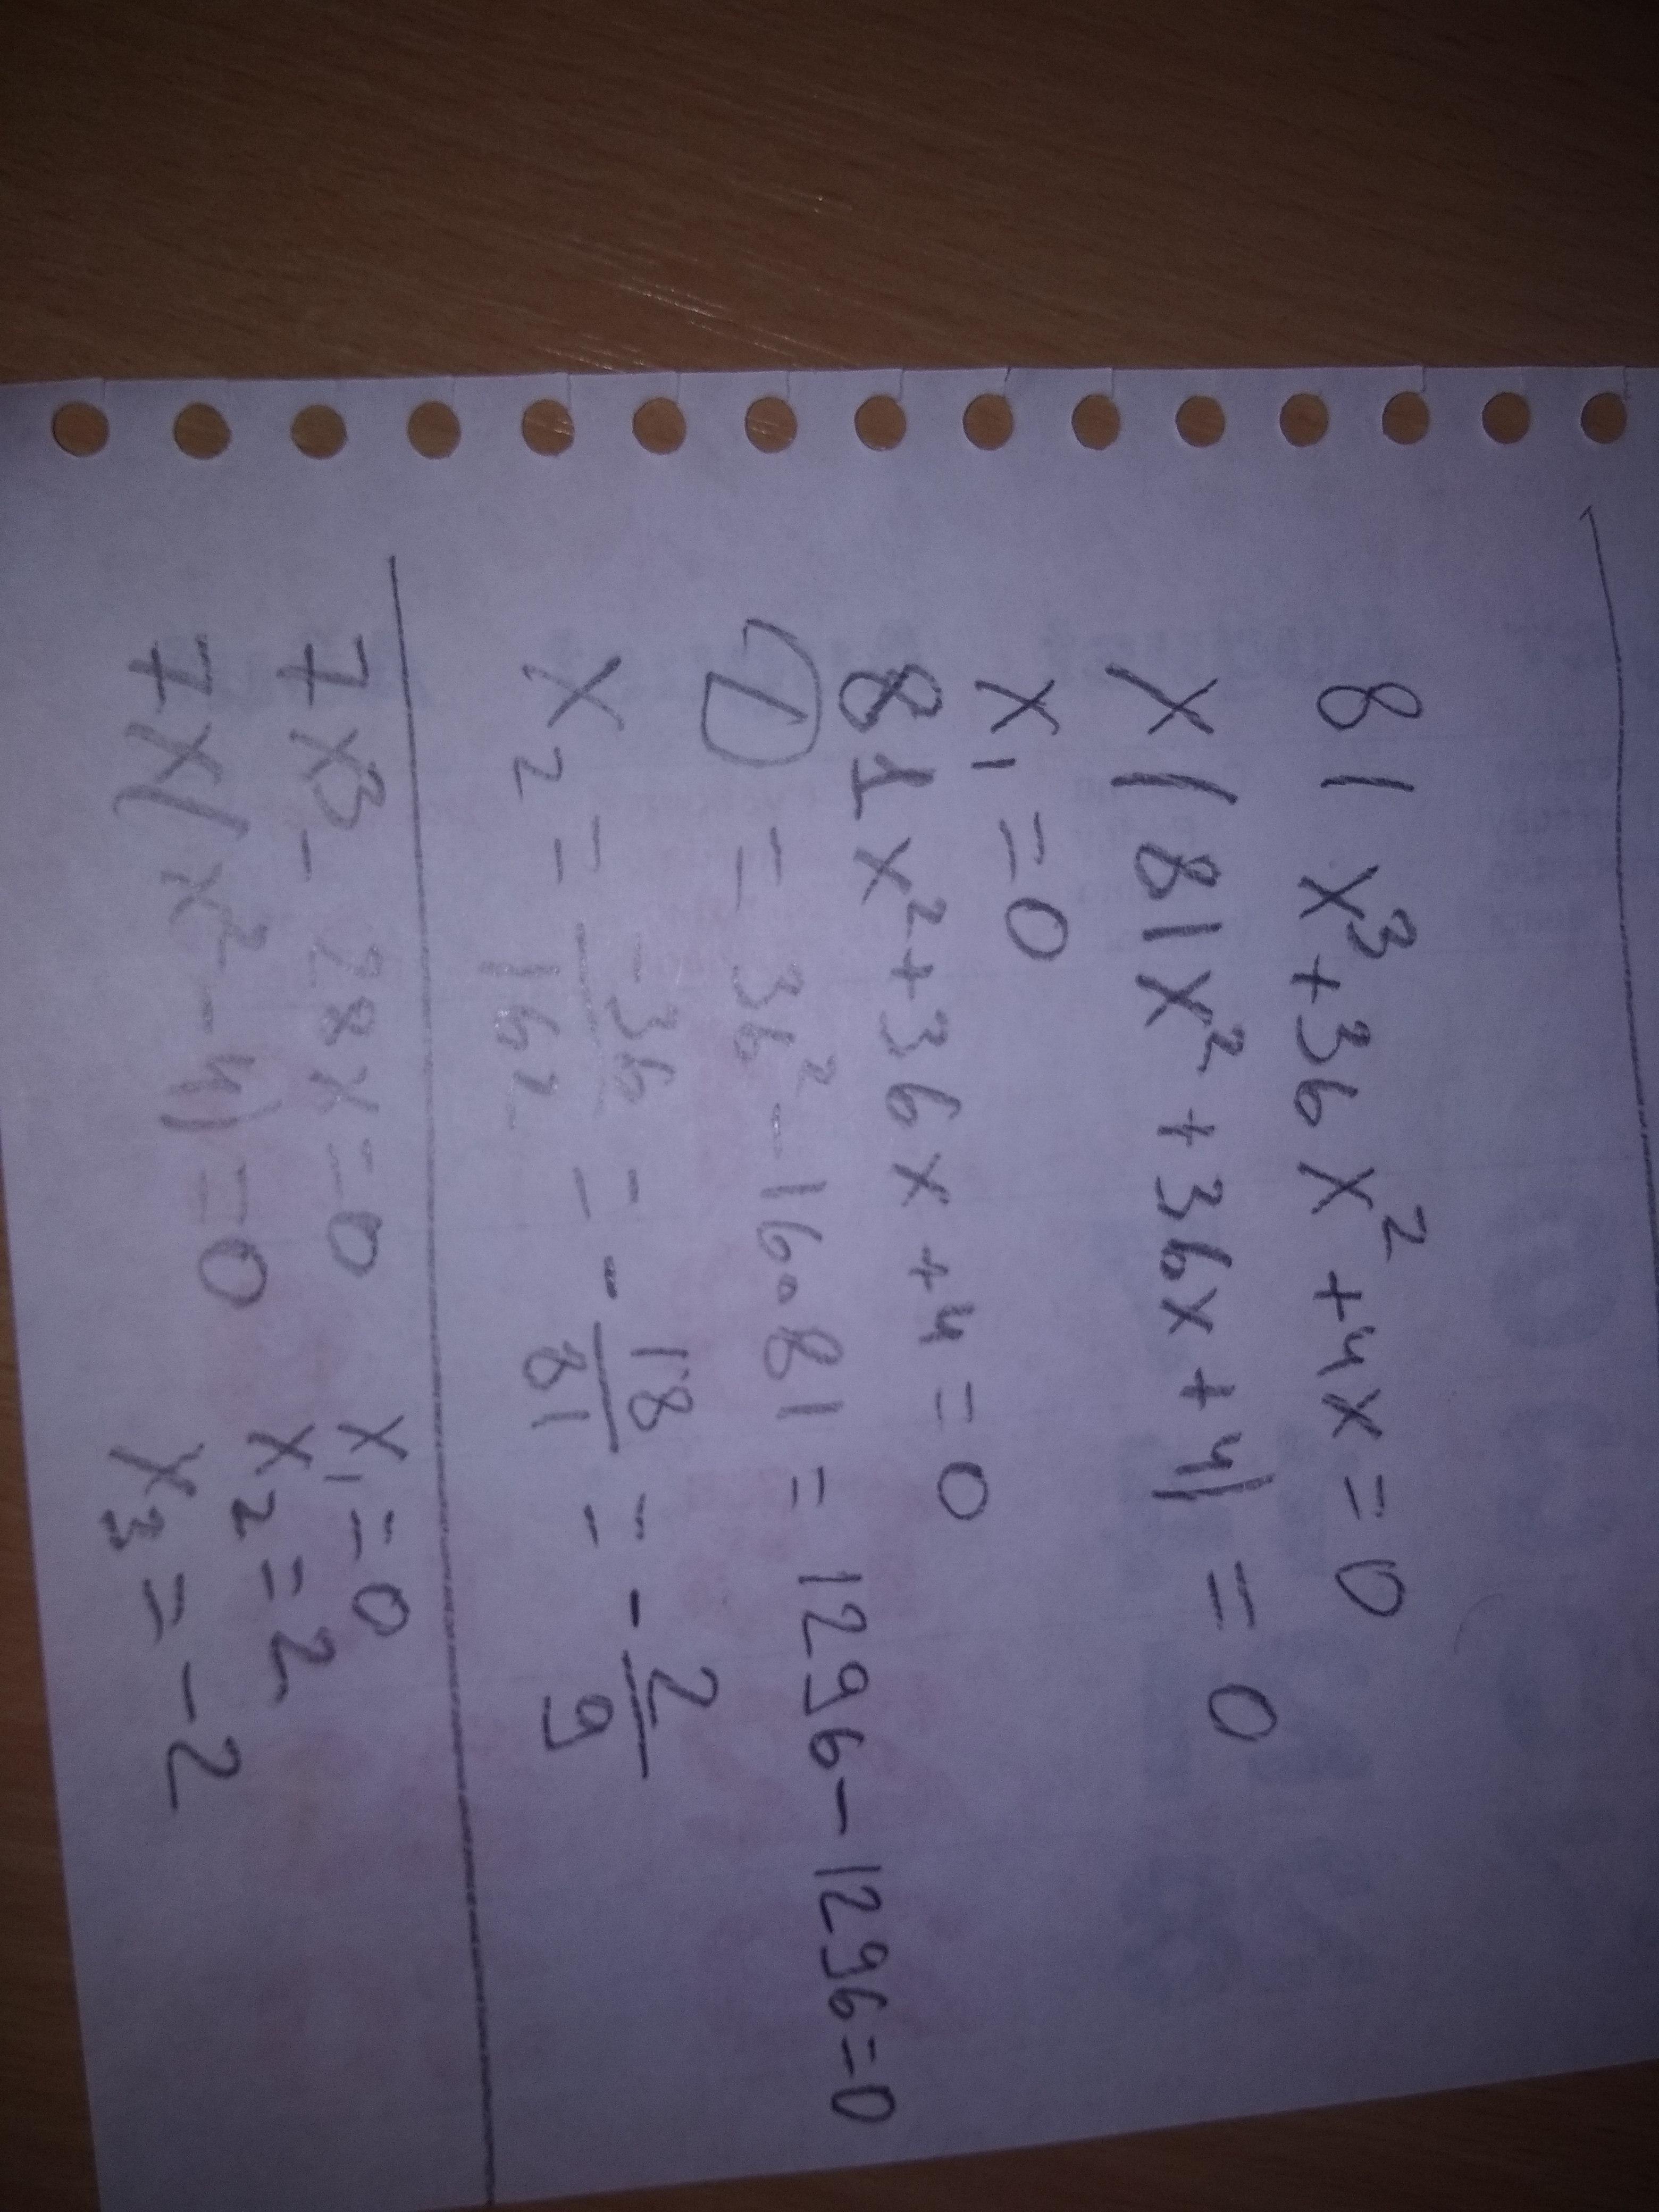 81x³+36x²+4x=0
x(81x²+36x+4)=0
x₁=0
81x²+36x+4=0
Ⓓ=36²-16∘81=1296-1296=0
x₂=-36/162=-18/81=-2/9
7x³-28x=0 x₁=0
7x(x²-4)=0 x₂=2
x₃=-2